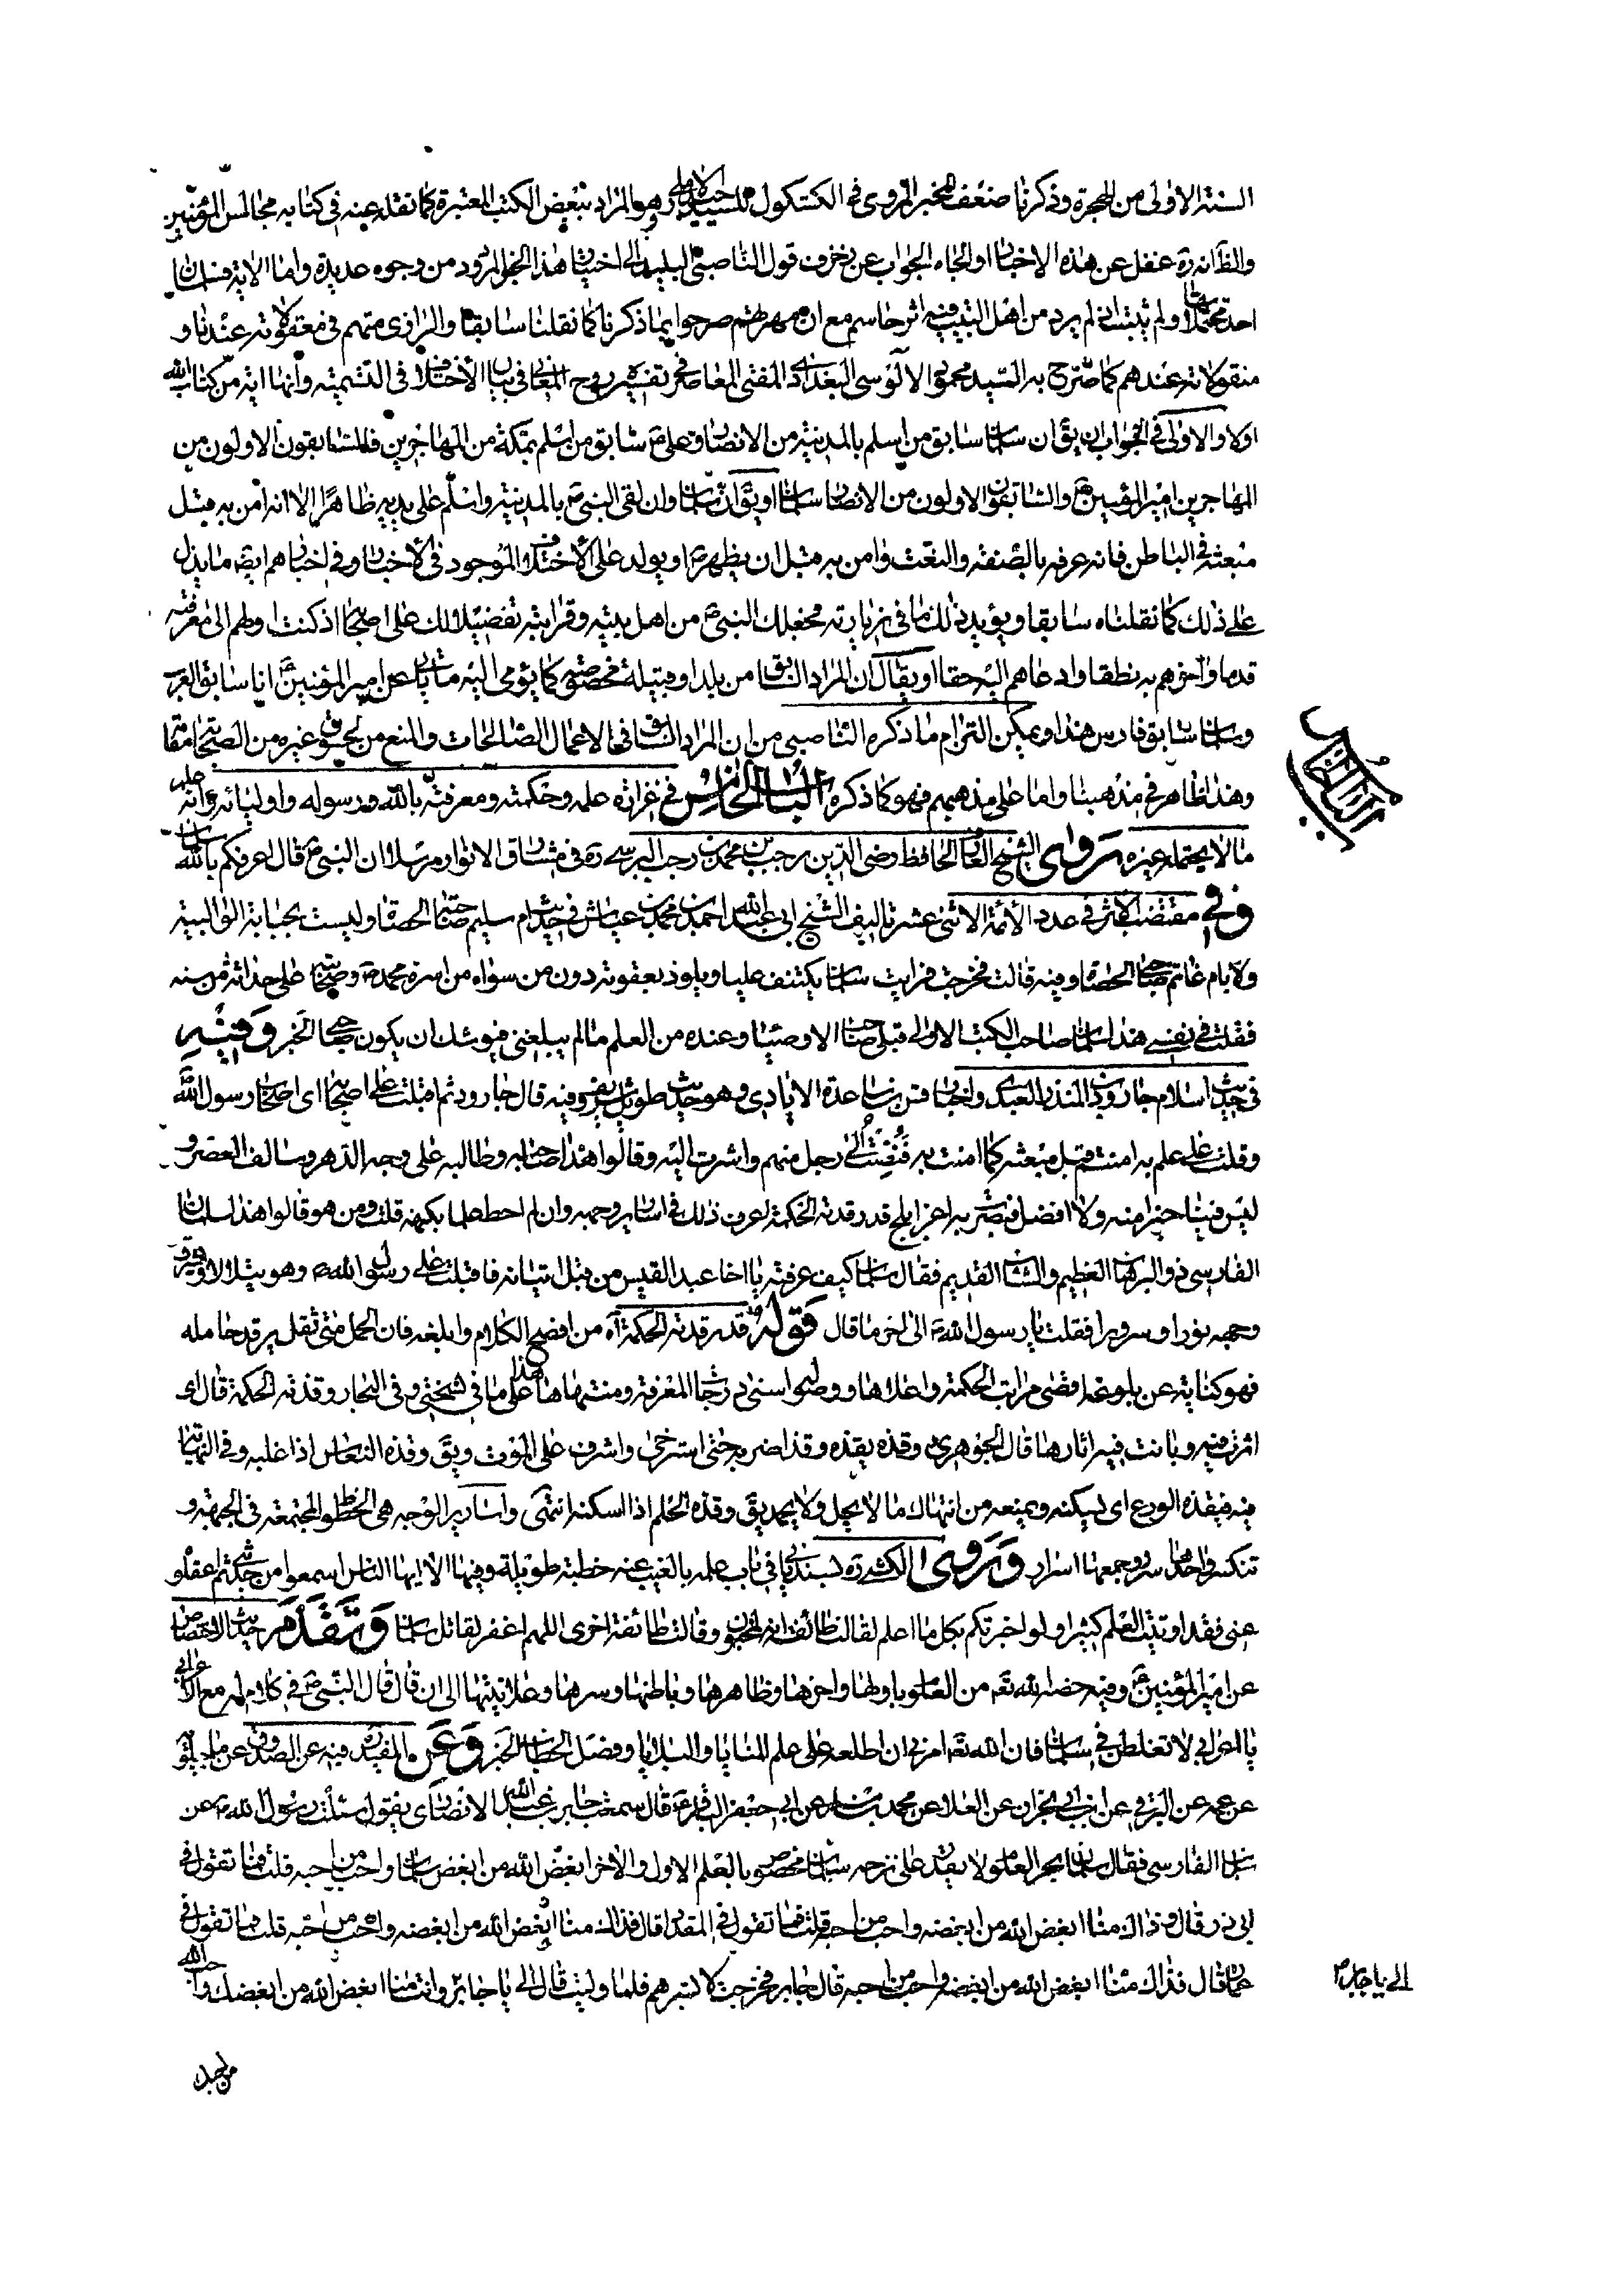 السنة الاولى من الهجرة وذكرنا ضعف الخبر المروى فى الكشكول للسيد حيدر الاملى وهو المراد ببعض الكتب المعتبرة كما نقله عنه فى كتابه مجالس المؤمنين
والظ انه ره غفل عن هذه الاخبار او الجاه الجواب عن زخرف قول الناصبى البليد الى اختيار هذا الخبر المردود من وجوه عديدة واما الاية فسلمان
احد محتملاتها ولم يثبت اذ لم يرد من اهل البيت فيه اثر حاسم مع ان جمهورهم صرحوا بما ذكرنا كما نقلنا سابقا والرازى متهم فى معقولاته عندنا و
منقولاته عندهم كما صرح به السيد محمود الالوسى البغدادى المفتى المعاصر فى تفسيره روح المعانى فى بيان الاختلاف فى التسمية وانها اية من كتاب الله
اولا والاولى فى الجواب ان يق ان سلمان سابق من اسلم بالمدينة من الانصار وعلى ع سابق من اسلم بمكة من المهاجرين فالسابقون الاولون من
المهاجرين امير المؤمنين ع والسابقون الاولون من الانصار سلمان او يق ان سلمان وان لقى النبى ص بالمدينة واسلم على يديه ظاهرا الا انه امن به قبل
مبعثه فى الباطن فانه عرفه بالصفة والنعت وامن به قبل ان يظهر ص او يولد على الاختلاف الموجود فى الاخبار وفى اخبارهم ايضه ما يدل
على ذلك كما نقلناه سابقا ويؤيد ذلك ما فى زيارته فجعلك النبى ص من اهل بيته وقرابته تفضيلا لك على اصحابه اذ كنت اولهم الى معرفته
قدما واحقهم به نطقا وادعاهم اليه حقا او يقال ان المراد السابق من بلد او قبيلة مخصوصة كما يؤمى اليه ما يات عن امير المؤمنين ع انا سابق العرب
وسلمان سابق فارس هذا ويمكن التزام ما ذكره الناصبى من ان المراد السابق فى الاعمال الصالحات والمنع من لحوق غيره من الصحابة مقامه
وهذا ظاهر فى مذهبنا واما على مذهبهم فهو كما ذكره الباب الخامس فى غزارة علمه وحكمته ومعرفته بالله ورسوله واوليائه وانه حمل
ما لا يحتمله غيره روى الشيخ العالم الحافظ رضى الدين رجب بن محمد بن رجب البرسى ره فى مشارق الانوار مرسلا ان النبى ص قال اعرفكم بالله سلمان
وفى مقتضب الاثر فى عدد الائمة الاثنى عشر تاليف الشيخ ابى عبد الله احمد بن محمد بن عياش فى حديث ام سليم صاحبة الحصاة وليست بحبابة الوالبية
ولا بام غانم صاحبة الحصاة وفيه قالت فخرجت فرايت سلمان يكتنف عليا ويلوذ بعقوته دون من سواه من اسرة محمد ص وصحابته على حداثة من سنه
فقلت فى نفسى هذا سلمان صاحب الكتب الاولى قبلى صاحب الاوصياء وعنده من العلم ما لم يبلغنى فيوشك ان يكون صاحبى الخبر وفيه
فى حديث اسلام جارود بن المنذر العبدى واخبار قس بن ساعدة الايادى وهو حديث طويل شريف وفيه قال جارود ثم اقبلت على اصحابه اى اصحاب رسول الله
وقلت على علم به امنتم قبل مبعثه كما امنت به فنصت الى رجل منهم واشرت اليه وقالوا هذا صاحبه وطالبه على وجه الدهر وسالف العصر و
ليس فينا خير منه ولا افضل فبصرت به اغر ابلج قد وقذته الحكمة اعرف ذلك فى اسارير وجهه وان لم احط علما بكنهه قلت ومن هو قالوا هذا سلمان
الفارسى ذو البرهان العظيم والشان القديم فقال سلمان كيف عرفته يا اخا عبد القيس من قبل اتيانه فاقبلت على رسول الله ص وهو يتلالا ويشرق
وجهه نورا وسرورا فقلت يا رسول الله ص الى اخر ما قال قوله قد وقذته الحكمة اه من افصح الكلام وابلغه فان الحمل متى ثقل يوقذ حامله
فهو كناية عن بلوغه اقصى مراتب الحكمة واعلاها ووصوله اسنى درجات المعرفة ومنتهاها هذا على ما فى نسختى وفى البحار وقذته الحكمة قال اى
اثرت فيه وبانت فيه اثارها قال الجوهرى وقذه يقذه وقذا ضربه حتى استرخى واشرف على الموت ويق وقذه النعاس اذا غلبه وفى النهاية
فيه فيقذه الورع اى يسكنه ويمنعه من انتهاك ما لا يحل ولا يحمد يق وقذه الحلم اذا سكنه انتهى واسارير الوجه هى الخطوط المجتمعة فى الجبهة و
تنكسر واحدها سر وجمعها اسرار وروى الكشى ره بسند ياتى فى باب علمه بالغيب عنه خطبة طويلة وفيها الا ايها الناس اسمعوا من حديثى ثم اعقلوه
عنى فقد اوتيت العلم كثيرا ولو اخبرتكم بكل ما اعلم لقالت طائفة انه لمجنون وقالت طائفة اخرى اللهم اغفر لقاتل سلمان وتقدم حديث الاختصاص
عن امير المؤمنين ع وفيه حضه الله تعه من العلوم باولها واخرها وظاهرها وباطنها وسرها وعلانيتها الى ان قال قال النبى ص فى كلام له مع الاعرابى
يا اعرابى لا تغلطن فى سلمان فان الله تعه امرنى ان اطلعه على علم المنايا والبلايا وفصل الخطاب الخبر وعن المفيد ره فيه عن الصدوق عن ماجيلويه
عن عمه عن البرقى عن ابن ابى نجران عن العلا عن محمد بن مسلم عن ابى جعفر الباقر ع قال سمعت جابر بن عبد الله الانصارى يقول سئلت رسول الله ص عن
سلمان الفارسى فقال سلمان بحر العلم ولا يقدر على نزحه سلمان مخصوص بالعلم الاول والاخر ابغض الله من ابغض سلمان واحب من احبه قلت فما تقول فى
ابى ذر قال وذاك منا ابغض الله من ابغضه واحب من احبه قلت فما تقول فى المقداد قال وذاك منا ابغض الله من ابغضه واحب من احبه قلت فما تقول فى
عمار قال وذاك منا ابغض الله من ابغضه واحب من احبه قال جابر فخرجت لابشرهم فلما وليت قال الى يا جابر وانت منا ابغض الله من ابغضك واحب الله
الى يا جابر م
من احبك